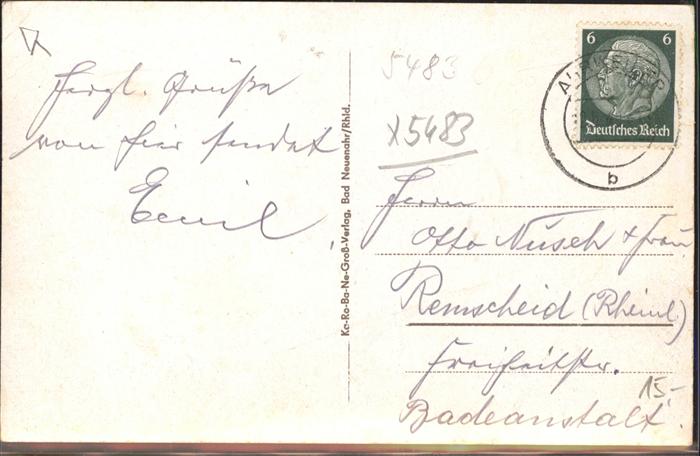 Herzl. Grüße
von hier sendet
Emil
Ka-Ro-Ba-Ne-Groß-Verlag, Bad Neuenahr/Rhld.
5483
X5483
6 6
Deutsches Reich
b
Herrn
Otto Nusch & Frau
Remscheid (Rheinl.)
Freiheitstr.
Badeanstalt.
15,-